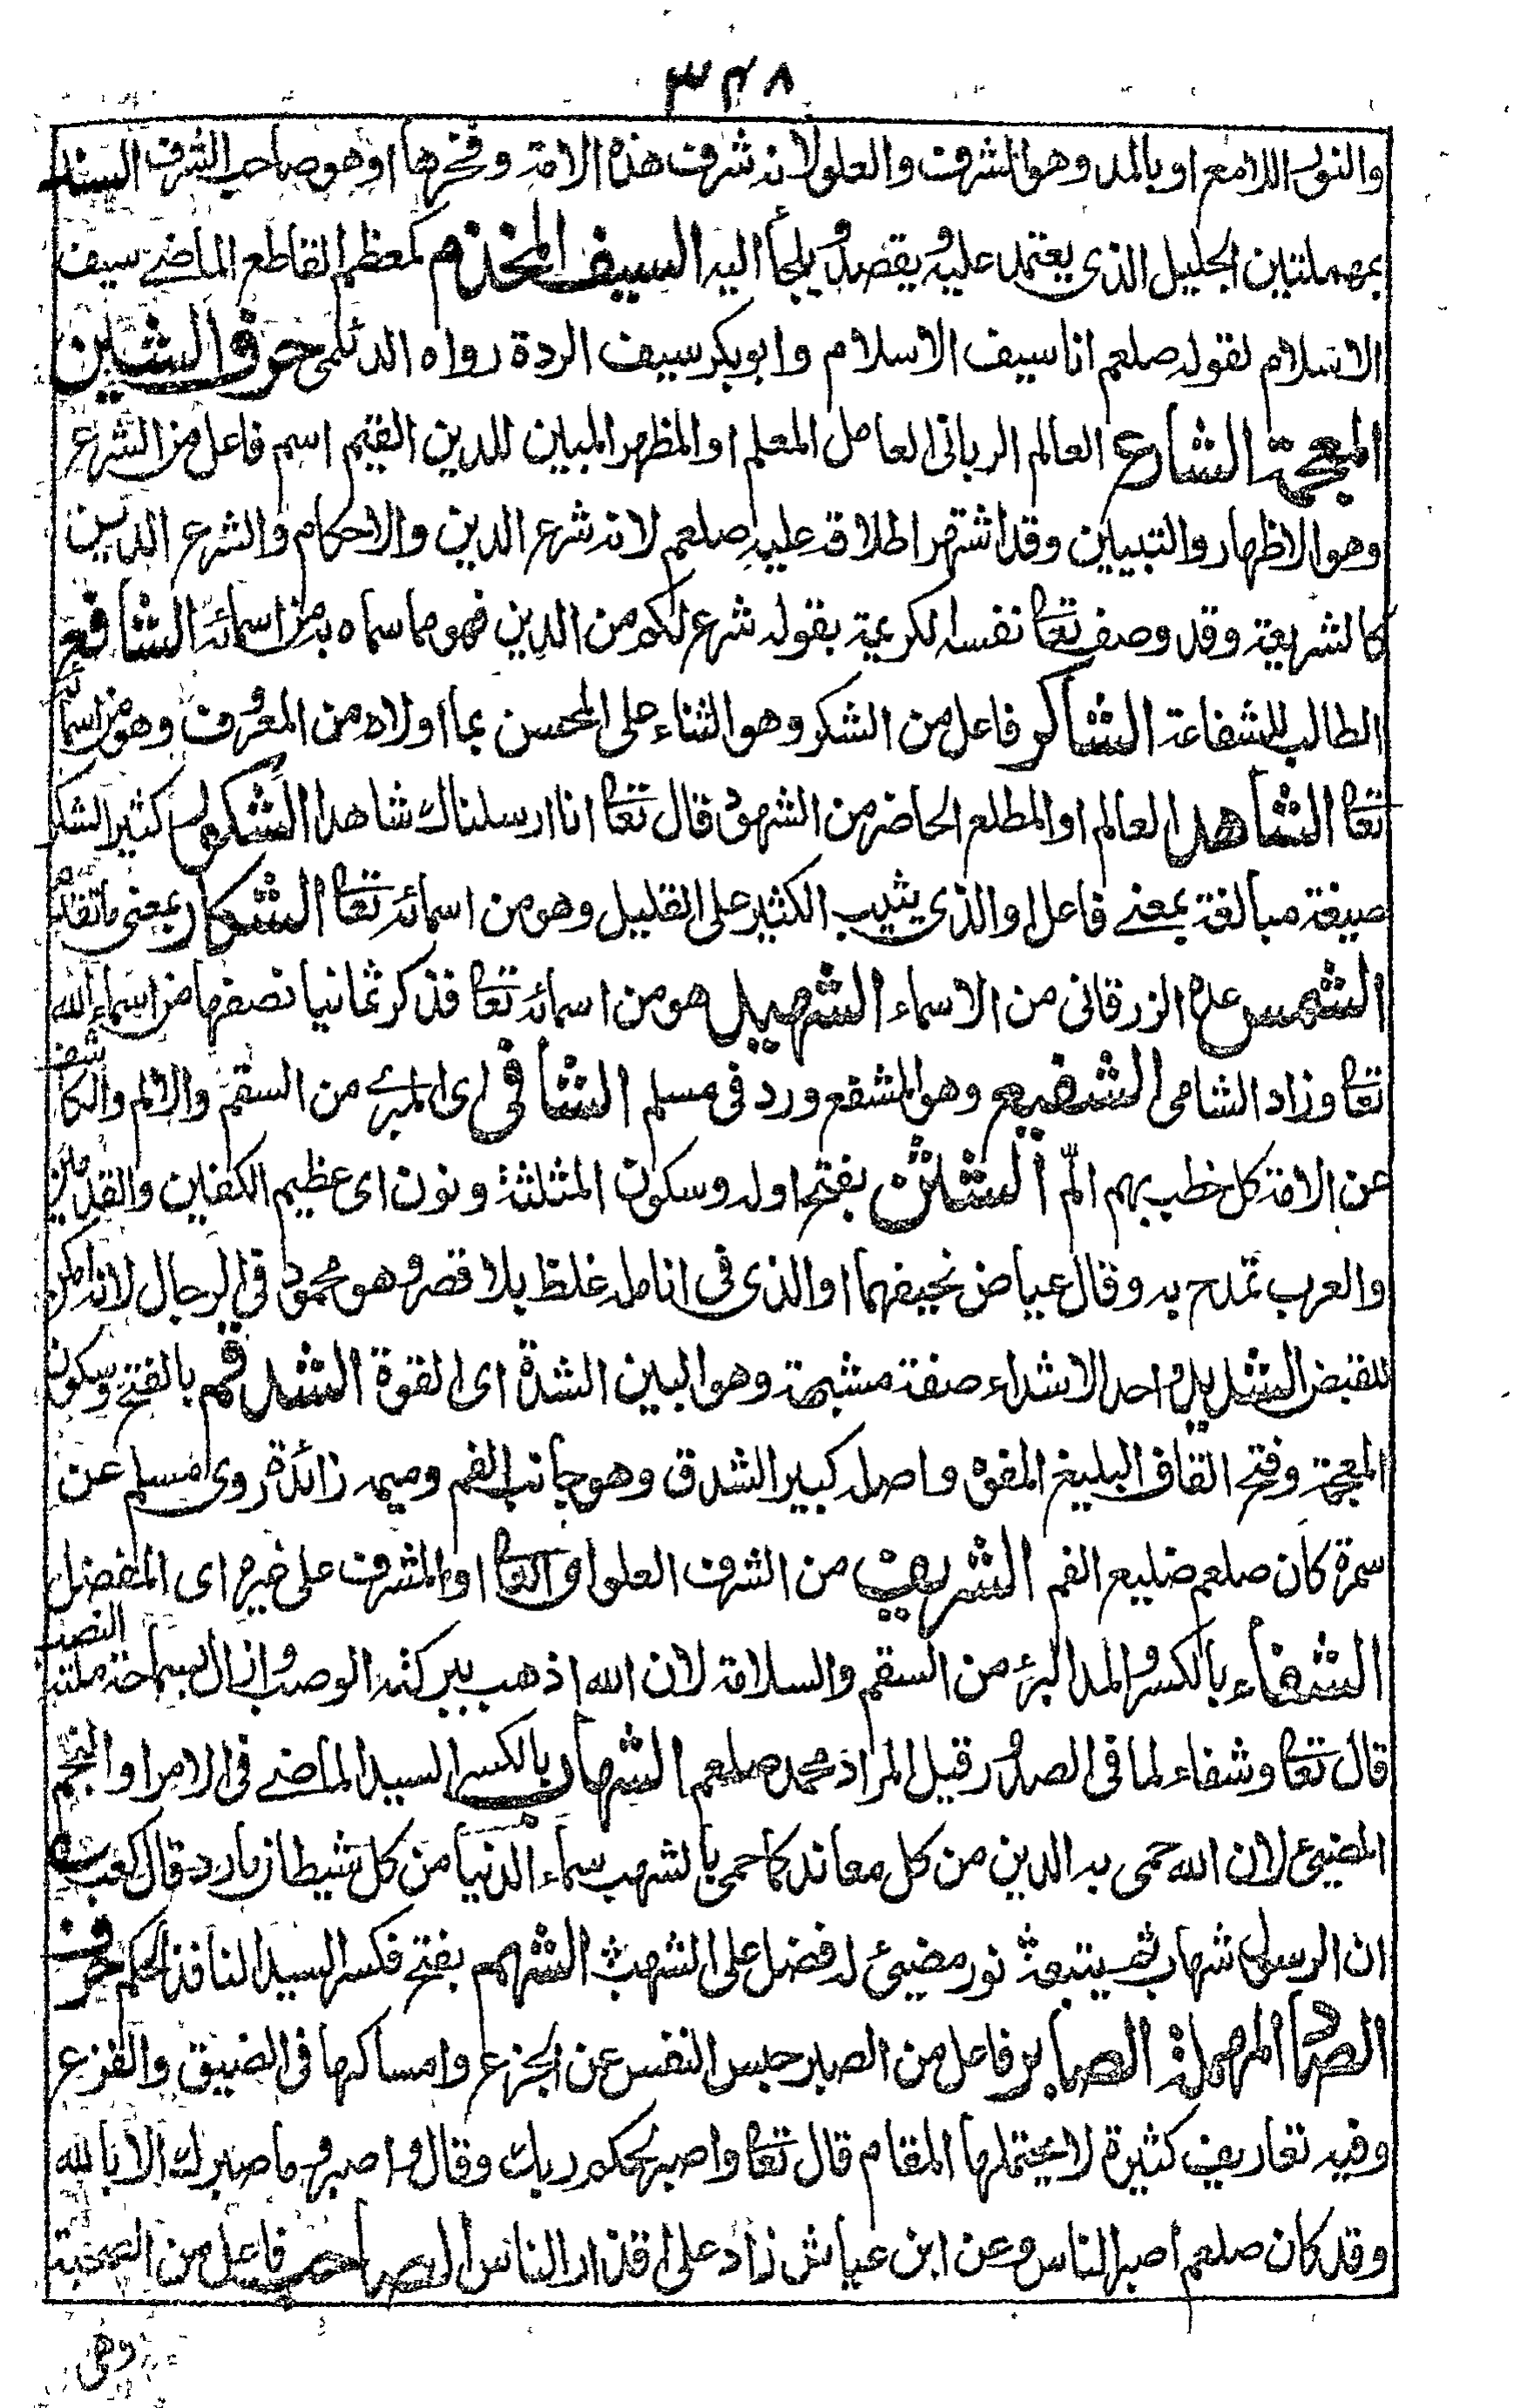 ٣٤٨
والنور اللامع او بالمد وهو الشرف والعلو لانه شرف هذه الامة وفخرها او هو صاحب الشرف السند
بمهملتين الجليل الذى يعتمد عليه ويقصد ويلجأ اليه السيف المخذم كمعظم القاطع الماضے سيف
الاسلام لقوله صلعم انا سيف الاسلام وابوبكر سيف الردة رواه الديلمى حرف الشين
المعجمة الشارع العالم الربانى العامل المعلم او المظهر المبين للدين القيم اسم فاعل من الشرع
وهو الاظهار والتبيين وقد اشتهر اطلاقه عليه صلعم لانه شرع الدين والاحكام والشرع الدين
كالشريعة وقد وصف تعا نفسه الكريمة بقوله شرع لكم من الدين فهو مما سماه به من اسمائه الشافع
الطالب للشفاعة الشاكر فاعل من الشكر وهو الثناء على المحسن بما اولاه من المعروف وهو من اسمائه
تعا الشاهد العالم او المطلع الحاضر من الشهود قال تعا انا ارسلناك شاهدا الشكور كثير الشكر
صيغة مبالغة بمعنے فاعل او الذى يثيب الكثير على القليل وهو من اسمائه تعا الشكار بمعنى ما تقدم
الشمس عده الزرقانى من الاسماء الشهيد هو من اسمائه تعا فذكر ثمانيا نصفها من اسماء الله
تعا وزاد الشامى الشفيع وهو المشفع ورد فى مسلم الشافى اى المبرئ من السقم والالم والكاشف
عن الامة كل خطب بهم المّ الشثن بفتح اوله وسكون المثلثة ونون اى عظيم الكفين والقدمين
والعرب تمدح به وقال عياض نحيفهما او الذى فى انامله غلظ بلا قصر وهو محمود فى الرجال لانه امكن
للقبض الشديد واحد الاشداء صفة مشبهة وهو البين الشدة اى القوة الشدقم بالفتح وسكون
المعجمة وفتح القاف البليغ المفوه واصله كبير الشدق وهو جانب الفم وميمه زائدة روى مسلم عن
سمرة كان صلعم ضليع الفم الشريف من الشرف العلو او العا او المشرف على غيره اى المفضل
الشفاء بالكسر والمد البرئ من السقم والسلامة لان الله اذهب ببركته الوصب وازال بسماحة ملته النصب
قال تعا وشفاء لما فى الصدور قيل المراد محمد صلعم الشهاب بالكسر السيد الماضے فى الامر او النجم
المضيئ لان الله حمى به الدين من كل معاند كما حمى بالشهب سماء الدنيا من كل شيطان مارد قال كعب ه
ان الرسول شهاب ثم يتبعه نور مضيئ له فضل على الشهب الشهم بفتح فكسر السيد النافذ الحكم حرف
الصاد المهملة الصابر فاعل من الصبر حبس النفس عن الجزع وامساكها فى الضيق والفزع
وفيه تعاريف كثيرة لا يحتملها المقام قال تعا واصبر لحكم ربك وقال واصبر وما صبرك الا بالله
وقد كان صلعم اصبر الناس وعن ابن عياش زاد على اقذار الناس الصاحب فاعل من الصحبة
وهى